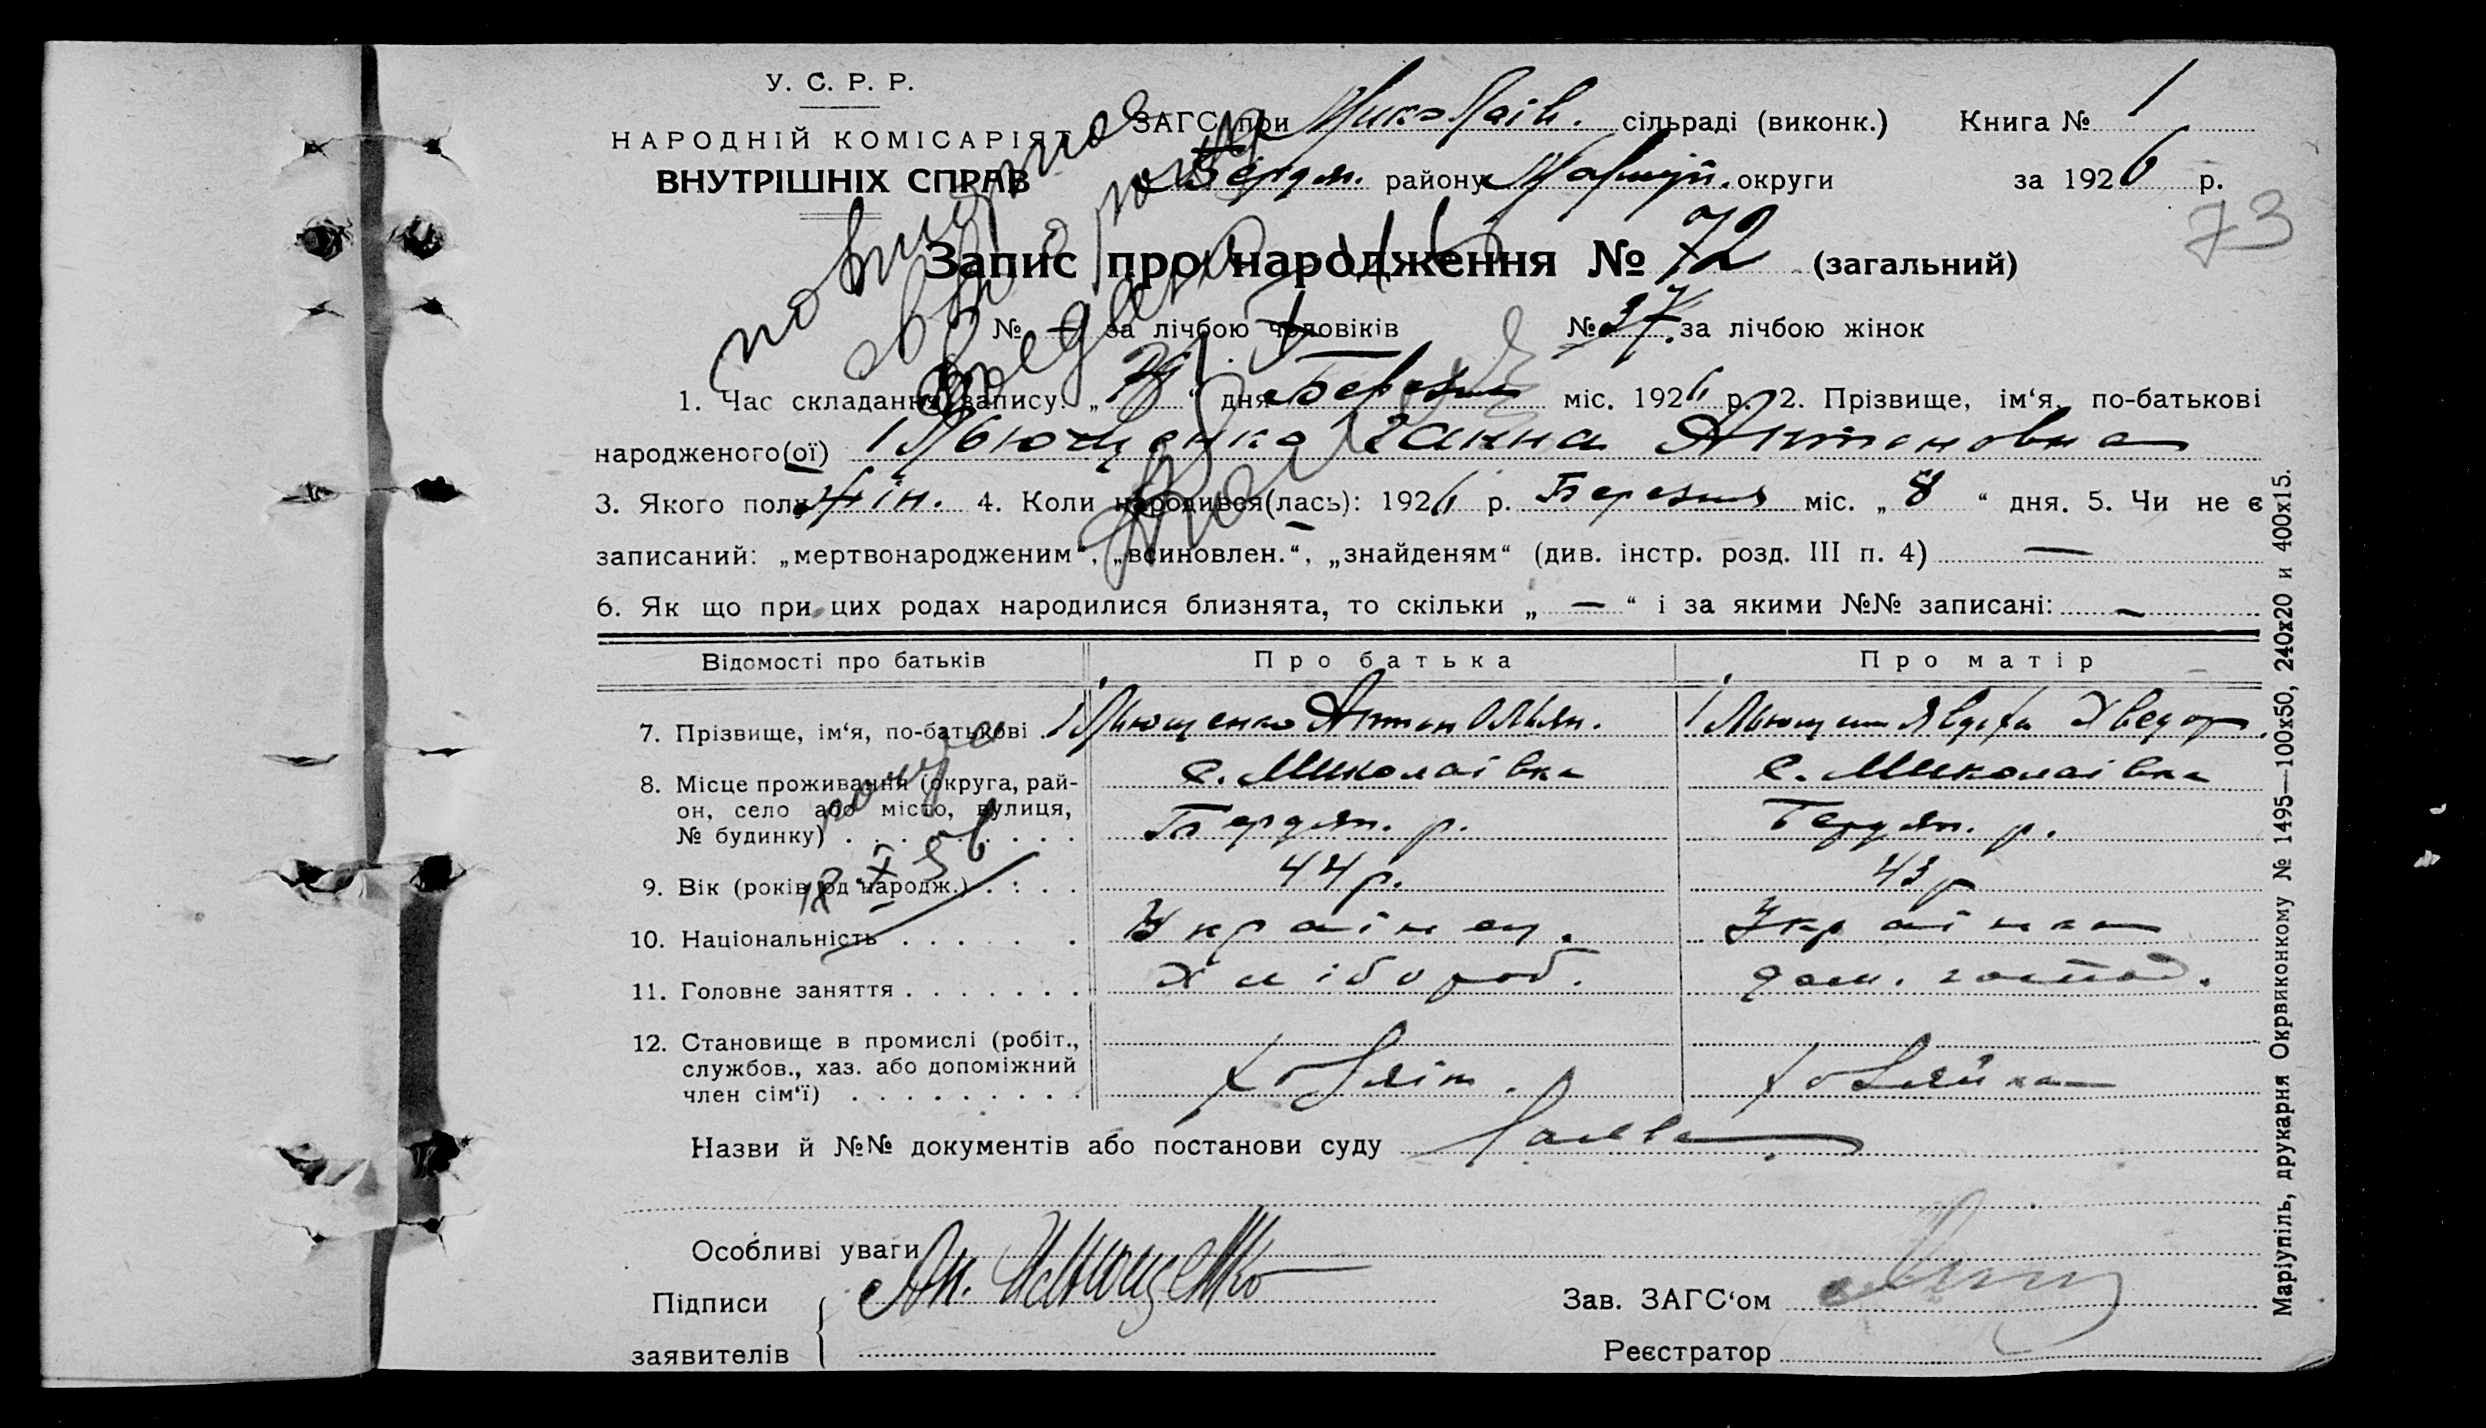 У. С. Р. Р.
НАРОДНІЙ КОМІСАРІЯТ
ВНУТРІШНІХ СПРАВ
ЗАГС при Миколаїв. сільраді (виконк.) Книга № 1
Бердян. району Маріуп. округи за 1926 р.
73
Запис про народження № 72 (загальний)
№ — за лічбою чоловіків № 37. за лічбою жінок
повторное
1. Час складання запису: „ “ дня Березня міс. 1926 р. 2. Прізвище, ім‘я, по-батькові
народженого(ої) Ганна Антоновна
3. Якого полу жін. 4. Коли народився(лась): 1926 р. Березня міс. „ 8 “ дня. 5. Чи не є
записаний: „мертвонародженим“, „всиновлен.“, „знайденям“ (див. інстр. розд. III п. 4) —
6. Як що при цих родах народилися близнята, то скільки „ — “ і за якими №№ записані: —
Відомості про батьків Про батька Про матір
7. Прізвище, ім‘я, по-батькові . Антон Хведор.
8. Місце проживання (округа, рай-
он, село або місто, вулиця,
№ будинку) . . . . . . . . .
с. Миколаївка с. Миколаївка
Бердян. р. Бердян. р.
9. Вік (років од народж.) . . . . 44 р. 43 р
18.X 56
10. Національність . . . . . . Українец. Українка
11. Головне заняття . . . . . . . Хлібороб. дом. господ.
12. Становище в промислі (робіт.,
службов., хаз. або допоміжний
член сім‘ї) . . . . . . . . .
Хозяїн. Хозяйка
Назви й №№ документів або постанови суду
Особливі уваги
Підписи
заявителів
Ан.
Зав. ЗАГС‘ом
Реєстратор
Маріупіль, друкарня Окрвиконкому № 1495—100х50, 240х20 и 400х15.